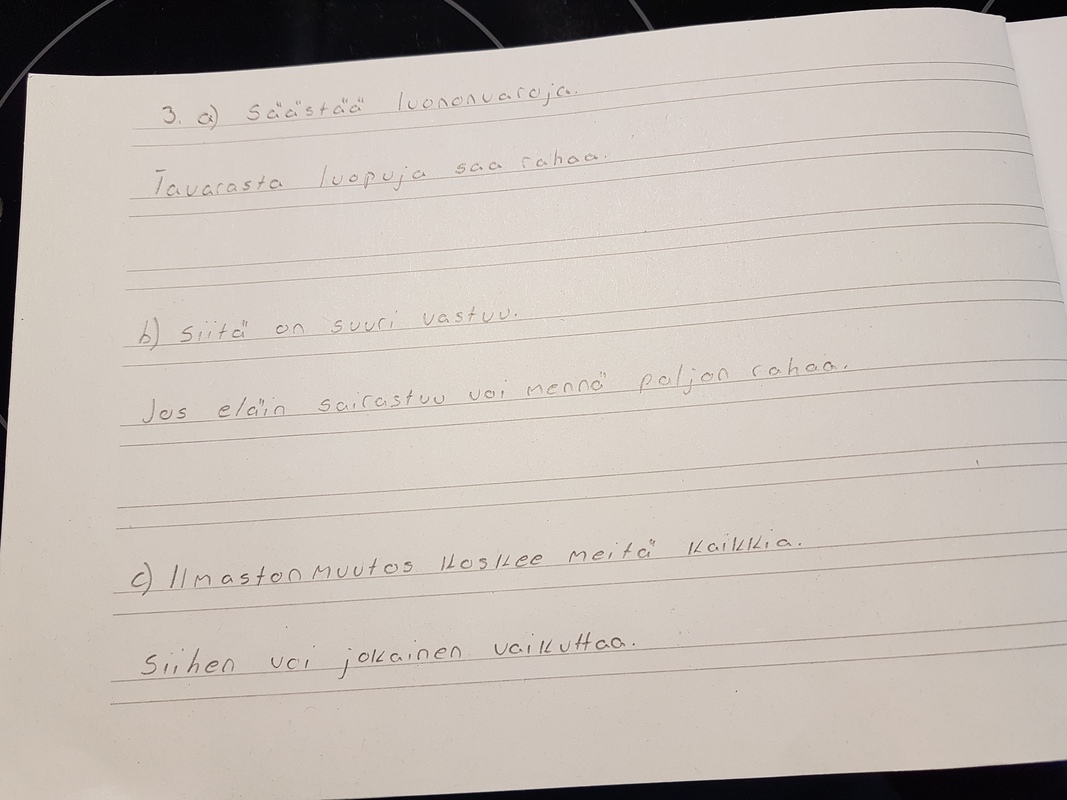 3. a) Säästää luononvaroja.
Tavarasta luopuja saa rahaa.
b) Siitä on suuri vastuu.
Jos eläin sairastuu voi mennä paljon rahaa.
c) Ilmastonmuutos koskee meitä kaikkia.
Siihen voi jokainen vaikuttaa.